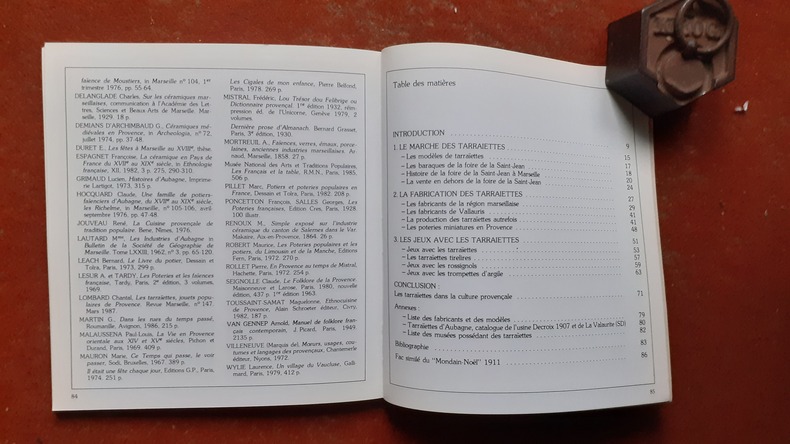 faïence de Moustiers, in Marseille nº 104, 1er
trimestre 1976, pp. 55-64.
DELANGLADE Charles, Sur les céramiques mar-
seillaises, communication à l'Académie des Let
tres, Sciences et Beaux-Arts de Marseille. Mar-
seille, 1929. 18 p.
DEMIANS D'ARCHIMBAUD G., Céramiques mé-
diévales en Provence, in Archeologia, nº 72,
juillet 1974, pp. 37-48.
DURET E., Les fêtes à Marseille au XVIIIe, thèse.
ESPAGNET Françoise, La céramique en Pays de
France du XVIIe au XIXe siècle, in Ethnologie
française, XII, 1982, 3 p. 275, 290-310.
GRIMAUD Lucien, Histoires d'Aubagne, Imprime-
rie Lartigot, 1973, 315 p.
HOCQUARD Claude, Une famille de potiers-
faïenciers d'Aubagne, du XVIIe au XIXe siècle,
les Richelme, in Marseille, nº 105-106, avril-
septembre 1976, pp. 47-48.
JOUVEAU René, La Cuisine provençale de
tradition populaire. Bene, Nîmes, 1976.
LAUTARD Mme, Les Industries d'Aubagne in
Bulletin de la Société de Géographie de
Marseille. Tome LXXIII, 1962, nº 3, pp. 65-120.
LEACH Bernard, Le Livre du potier, Dessain et
Tolra, Paris, 1973, 299 p.
LESUR A. et TARDY, Les Poteries et les faïences
française, Tardy, Paris, 2e édition, 3 volumes,
1969.
LOMBARD Chantal, Les tarraïettes, jouets popu-
laires de Provence. Revue Marseille, nº 147
Mars 1987.
MARTIN G., Dans les rues du temps passé,
Roumanille, Avignon, 1986, 215 p.
MALAUSSENA Paul-Louis, La Vie en Provence
orientale aux XIV et XVe siècles, Pichon et
Durand, Paris, 1969, 409 p.
MAURON Marie, Ce Temps qui passe, le voir
passer, Sodi, Bruxelles, 1967, 389 p.
Il était une fête chaque jour, Editions G.P., Paris,
1974. 251 p.
84
Les Cigales de mon enfance, Pierre Belfond,
Paris, 1978. 269 p.
MISTRAL Frédéric, Lou Trésor dou Felibrige ou
Dictionnaire provençal. 1re édition 1932, réim-
pression éd. de l'Unicorne, Genève 1979, 2
volumes.
Dernière prose d'Almanach. Bernard Grasset,
Paris, 3e édition, 1930.
MORTREUIL A., Faïences, verres, émaux, porce-
laines, anciennes industries marseillaises. Ar-
naud, Marseille, 1858. 27 p.
Musée National des Arts et Traditions Populaires,
Les Français et la table, R.M.N., Paris, 1985,
506 p.
PILLET Marc, Potiers et poteries populaires en
France, Dessain et Tolra, Paris, 1982. 208 p.
PONCETTON François, SALLES Georges, Les
Poteries françaises, Edition Cres, Paris, 1928,
100 illustr.
RENOUX M., Simple exposé sur l'industrie
céramique du canton de Salernes dans le Var.
Makaire, Aix-en-Provence, 1864. 26 p.
ROBERT Maurice, Les Poteries populaires et les
potiers, du Limousin et de la Manche, Editions
Fern, Paris, 1972. 270 p.
ROLLET Pierre, En Provence au temps de Mistral,
Hachette, Paris, 1972, 254 p.
SEIGNOLLE Claude, Le Folklore de la Provence.
Maisonneuve et Larose, Paris, 1980, nouvelle
édition, 437 p. 1re édition 1963.
TOUSSAINT-SAMAT Maguelonne, Ethnocuisine
de Provence, Alain Schroeter éditeur, Civry,
1982, 187 p.
VAN GENNEP Arnold, Manuel de folklore fran-
çais contemporain, J. Picard, Paris, 1949.
2135 p.
VILLENEUVE (Marquis de), Mœurs, usages, cou-
tumes et langages des provençaux, Chantemerle
éditeur, Nyons, 1972.
WYLIE Laurence, Un village du Vaucluse, Galli-
mard, Paris, 1979, 412 p.
Table des matières
INTRODUCTION
1. LE MARCHE DES TARRAIETTES 9
– Les modèles de tarraïettes 15
– Les baraques de la foire de la Saint-Jean 17
– Histoire de la foire de la Saint-Jean à Marseille 18
– La vente en dehors de la foire de la Saint-Jean 20
24
2. LA FABRICATION DES TARRAIETTES
– Les fabricants de la région marseillaise 27
– Les fabricants de Vallauris 29
– La production des tarraïettes autrefois 41
– Les poteries miniatures en Provence 41
48
3. LES JEUX AVEC LES TARRAIETTES 51
– Jeux avec les tarraïettes 53
– Les tarraïettes tirelires 57
– Jeux avec les rossignols 59
– Jeux avec les trompettes d'argile 63
CONCLUSION :
Les tarraïettes dans la culture provençale 71
Annexes :
– Liste des fabricants et des modèles 79
– Tarraïettes d'Aubagne, catalogue de l'usine Decroix 1907 et de La Valaurite (SD) 80
– Liste des musées possédant des tarraïettes 82
Bibliographie 83
Fac similé du "Mondain-Noël" 1911 86
85